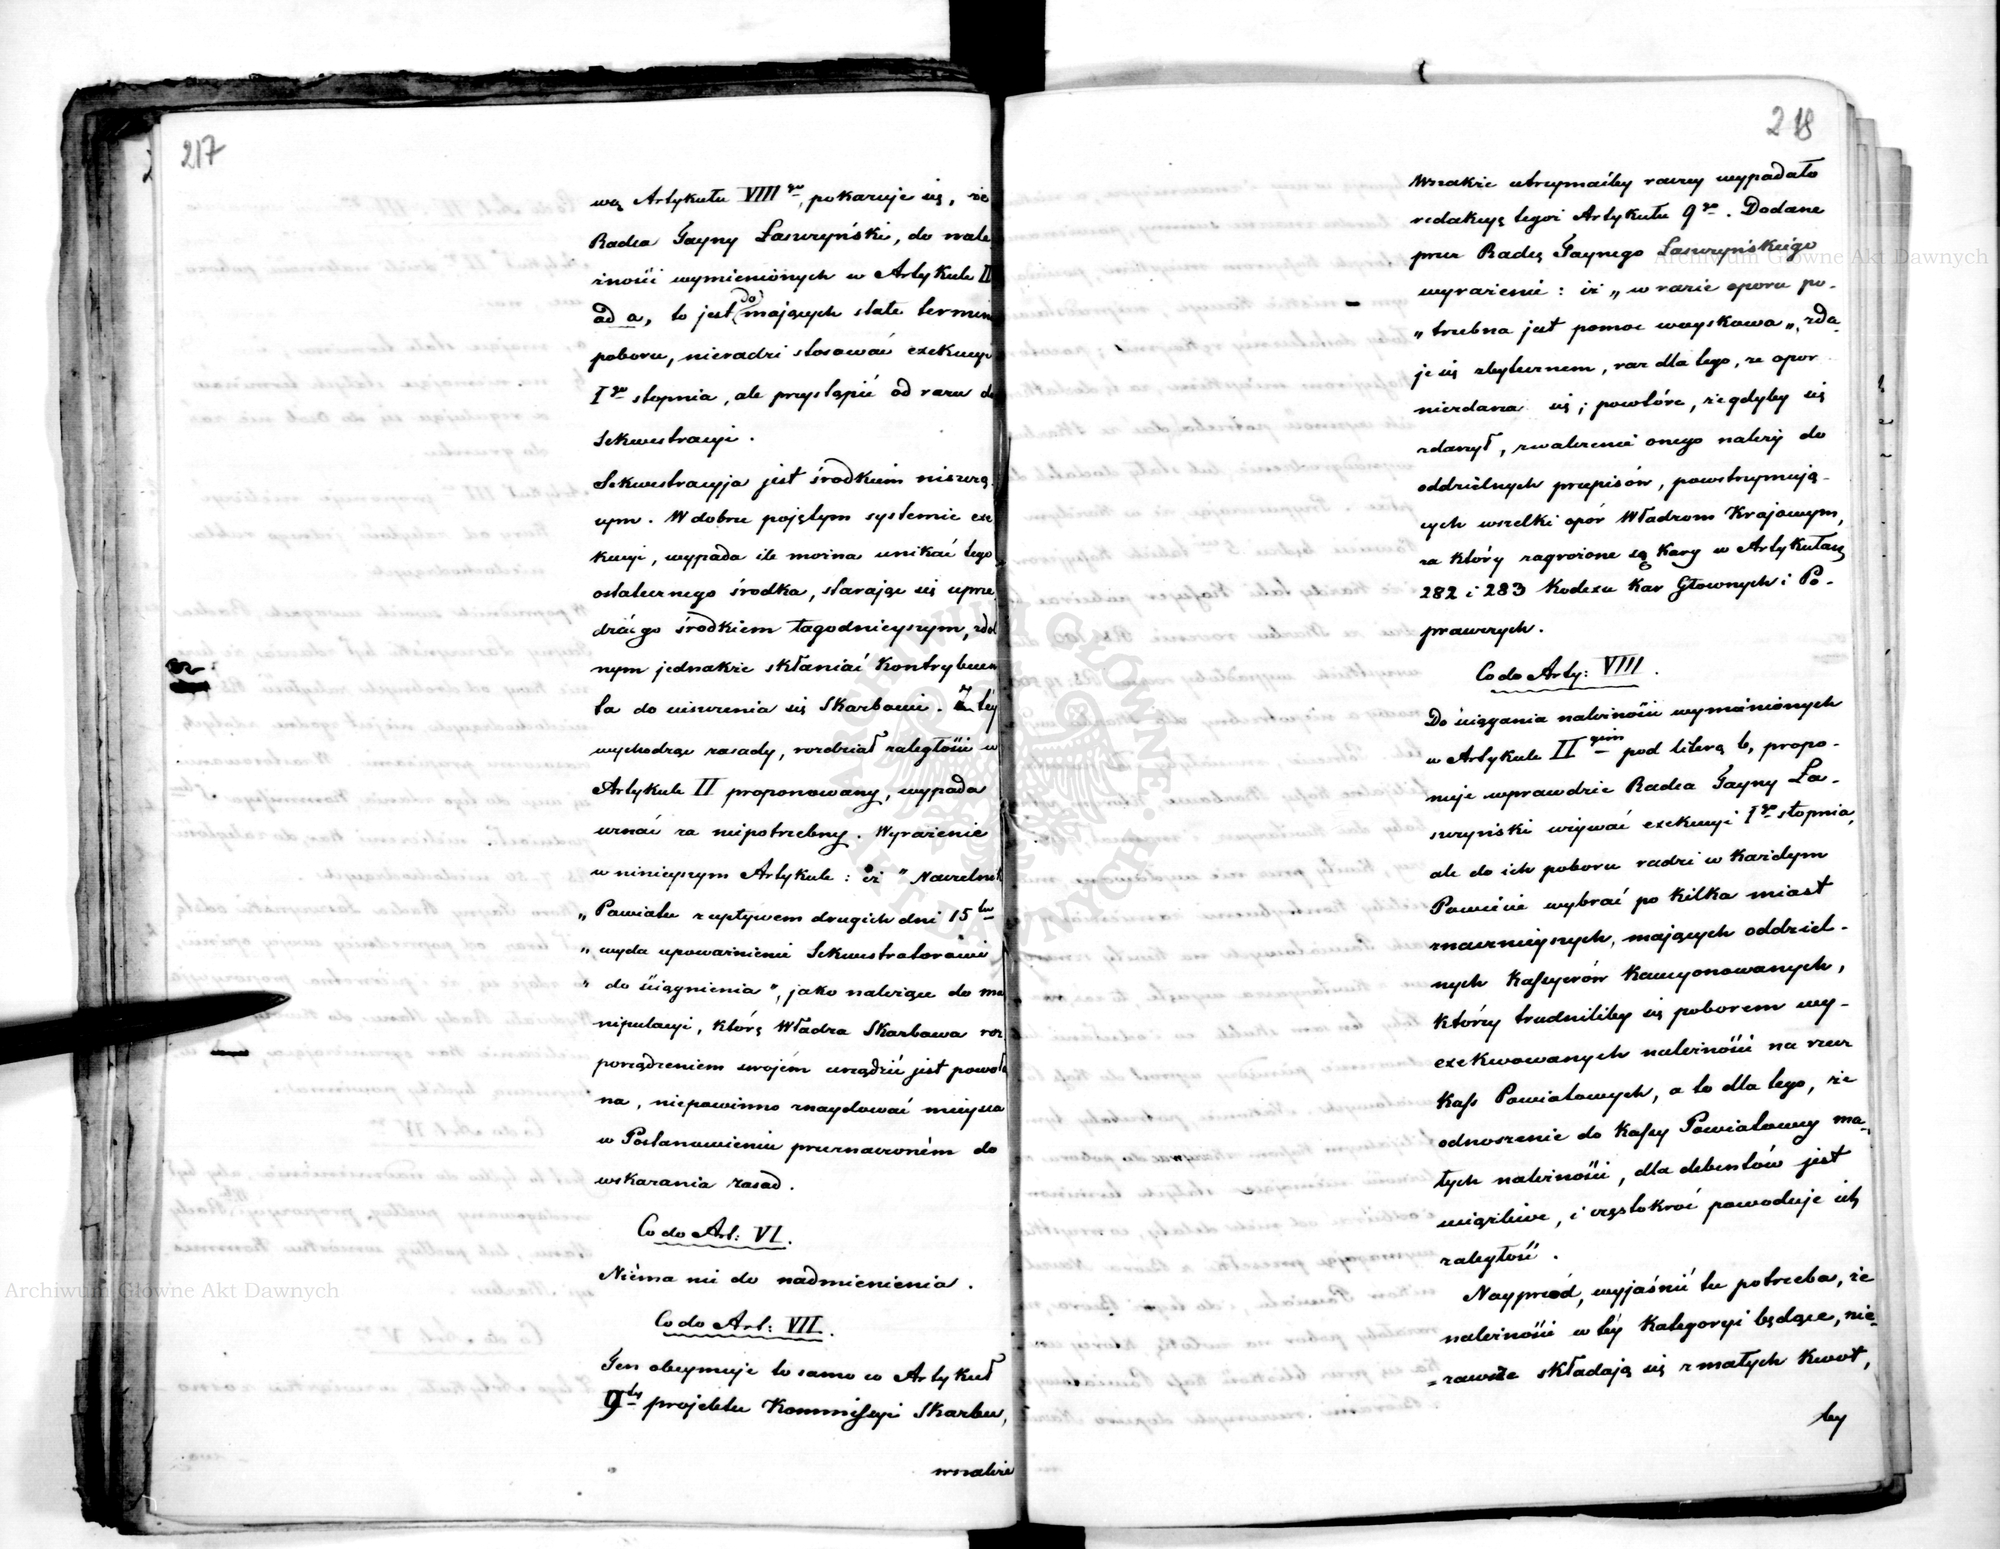 217
wą Artykułu VIII go, pokazuje się, że
Radca Tayny Łaszczyński, do nale
żności wymienionych w Artykule II
ad a, to jest (do) mających stałe termin
poboru, nieradzi stosować exekucyi
Igo stopnia, ale przystąpić od razu do
Sekwestracyi.
Sekwestracyja jest środkiem niszczą-
cym. W dobrze pojętym systemie exe
kucyi, wypada ile można unikać tego
ostatecznego środka, starając się uprze
dzić go środkiem łagodnieyszym, zdol
nym jednakże skłaniać Kontrybuen
ta do uiszczenia się Skarbowi. Z téy
wychodząc zasady, rozdział zaległości w
Artykule II proponowany, wypada
uznać za niepotrzebny. Wyrażenie
w ninieyszym Artykule: iż "Naczelnik
„ Powiatu z upływem drugich dni 15tu
„ wyda upoważnienie Sekwestratorowi
" do ściągnienia", jako należące do ma
nipulacyi, którą Władza Skarbowa roz
porządzeniem swojém urządzić jest powoła
na, niepowinno znaydować mieysca
w Postanowieniu przeznaczoném do
wskazania zasad.
Co do Art: VI.
Niéma nic do nadmienienia.
Co do Art: VII.
Ten obeymuje to samo co Artykuł
9ty projektu Kommissyi Skarbu,
wszakże
218
Wszakże utrzymaćby raczey wypadało
redakcyą tegoż Artykułu 9go. Dodane
przez Radcę Taynego Łaszczyńskiego
wyrażenie: iż „w razie oporu po-
„trzebna jest pomoc woyskowa„, zda-
je się zbytecznem, raz dla tego, że opor
niezdarza się; powtóre, że gdyby się
zdarzył, zwalczenie onego należy do
oddzielnych przepisów, powstrzymują-
cych wszelki opór Władzom Krajowym,
za który zagrożone są Kary w Artykułach
282 i 283 Kodexu Kar Głownych i Po-
prawczych.
Co do Arty: VIII.
Do ściągania należności wymienionych
w Artykule II gim pod literą b, propo-
nuje wprawdzie Radca Tayny Ła-
szczyński używać exekucyi Igo stopnia,
ale do ich poboru radzi w Każdym
Powiecie wybrać po kilka miast
znacznieyszych, mających oddziel-
nych Kassyerów Kaucyonowanych,
którzy trudniliby się poborem wy-
exekwowanych należności na rzecz
Kass Powiatowych, a to dla tego, że
odnoszenie do Kassy Powiatowey ma-
łych należności, dla debentów jest
uciążliwe, i częstokroć powoduje ich
zaległość.
Nayprzód, wyjaśnić tu potrzeba, że
należności w téy Kategoryi będące, nie-
=zawsze składają się z małych Kwot,
tey
Archiwum Główne Akt Dawnych
Archiwum Główne Akt Dawnych
ARCHIWUM GŁÓWNE AKT DAWNYCH